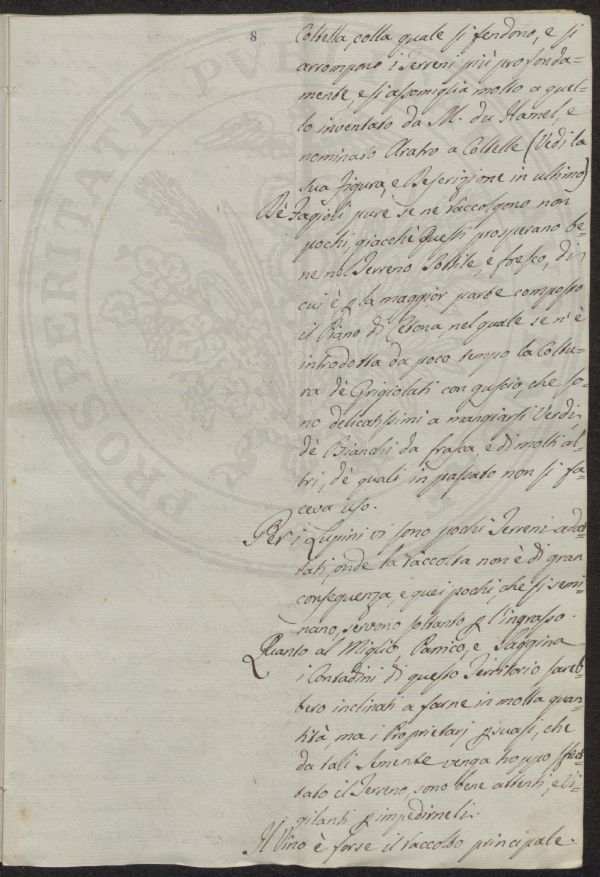 8
Coltella, colla quale si fendono, e si
arrompono i Terreni più profonda=
mente, e si assomiglia molto a quel=
lo inventato da M. du Hamel, e
nominato Aratro a Coltelle (Vedi la
sua Figura, e Descrizione in ultimo)
Dè Fagioli pure se ne raccolgono non
pochi, giacchè questi prosperano be=
ne nel Terreno sottile, e fresco, di
cui è p la maggior parte composto
il Piano di Cetona, nel quale se n'è
introdotta da poco tempo la Coltu=
ra dè Grigiolati con guscio, che so=
no delicatissimi a mangiarsi Verdi,
dè Bianchi da frasca, e di molti al=
tri, dè quali in passato non si fa=
ceva uso.
Per i Lupini vi sono pochi Terreni adat=
tati, onde la raccolta non è di gran
conseguenza, e quei pochi, che si semi=
nano, servono soltanto p l'ingrasso.
Quanto al Miglio, Panico, e Saggina
i Contadini di questo Territorio sareb=
bero inclinati a farne in molta quan=
tità, ma i Proprietarj psuasi, che
da tali Semente venga troppo sfrut=
tato il Terreno, sono bene attenti, e Vi=
gilanti p impedirneli.
Il Vino è forse il raccolto principale
PROSPERITATI PVB